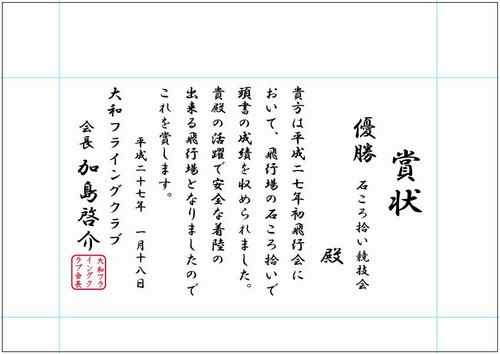 賞状
優勝 石ころ拾い競技会
殿
貴方は平成二七年初飛行会に
おいて、飛行場の石ころ拾いで
頭書の成績を収められました。
貴殿の活躍で安全な着陸の
出来る飛行場となりましたので
これを賞します。
平成二十七年 一月十八日
大和フライングクラブ
会長 加島啓介
大和フラ
イングク
ラブ会長